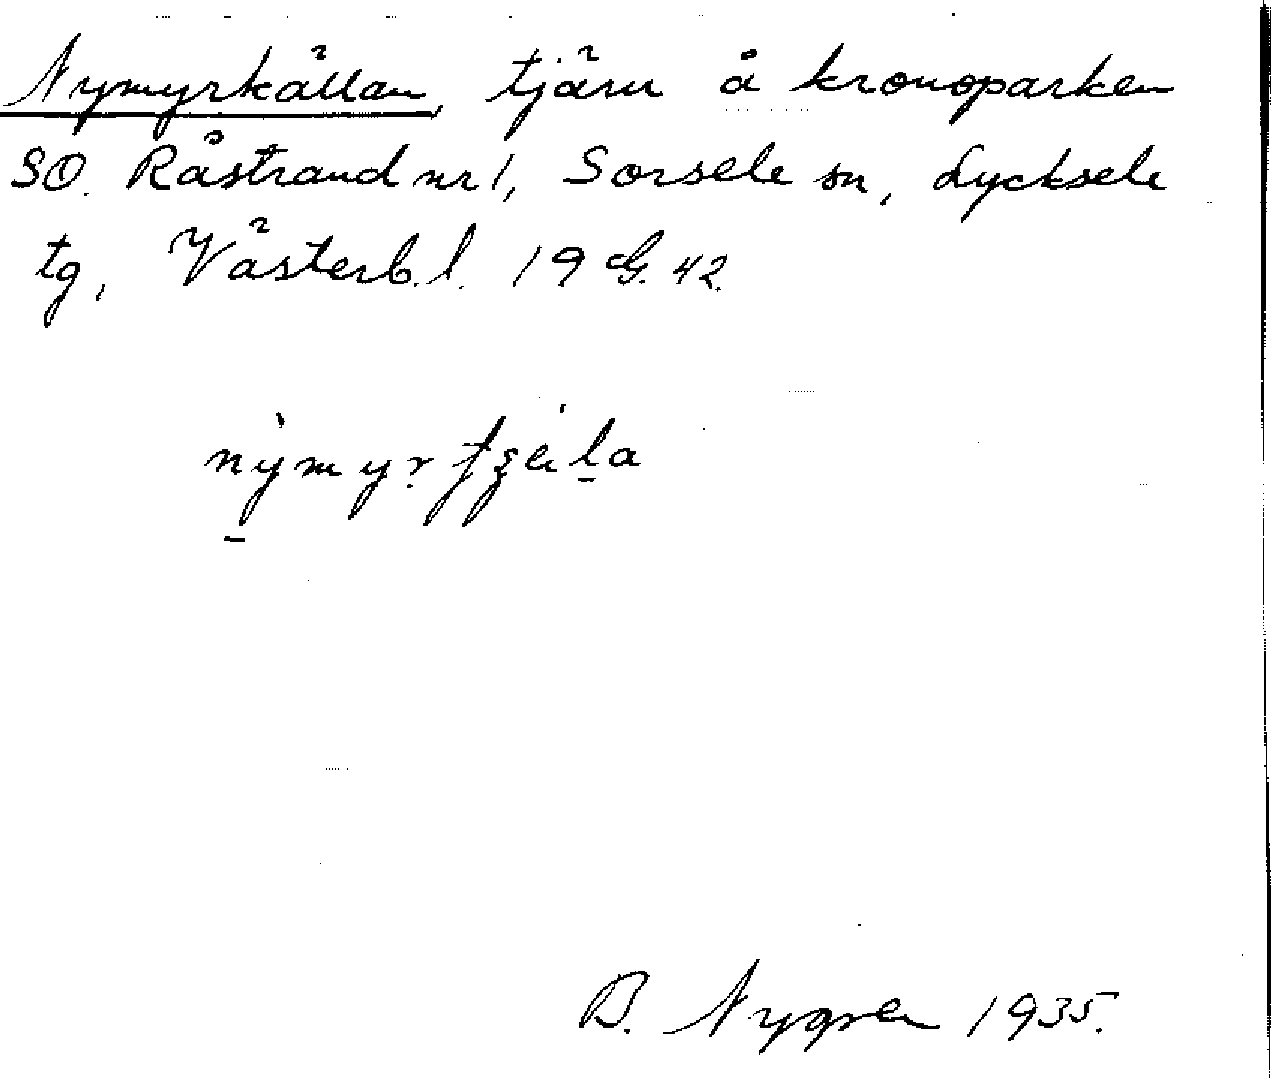 Nymyrkällan, tjärn å kronoparken
SO. Råstrand nr 1, Sorsele sn, Lycksele
tg, Västerb. l. 19 G. 42.
B. Nygren 1935.